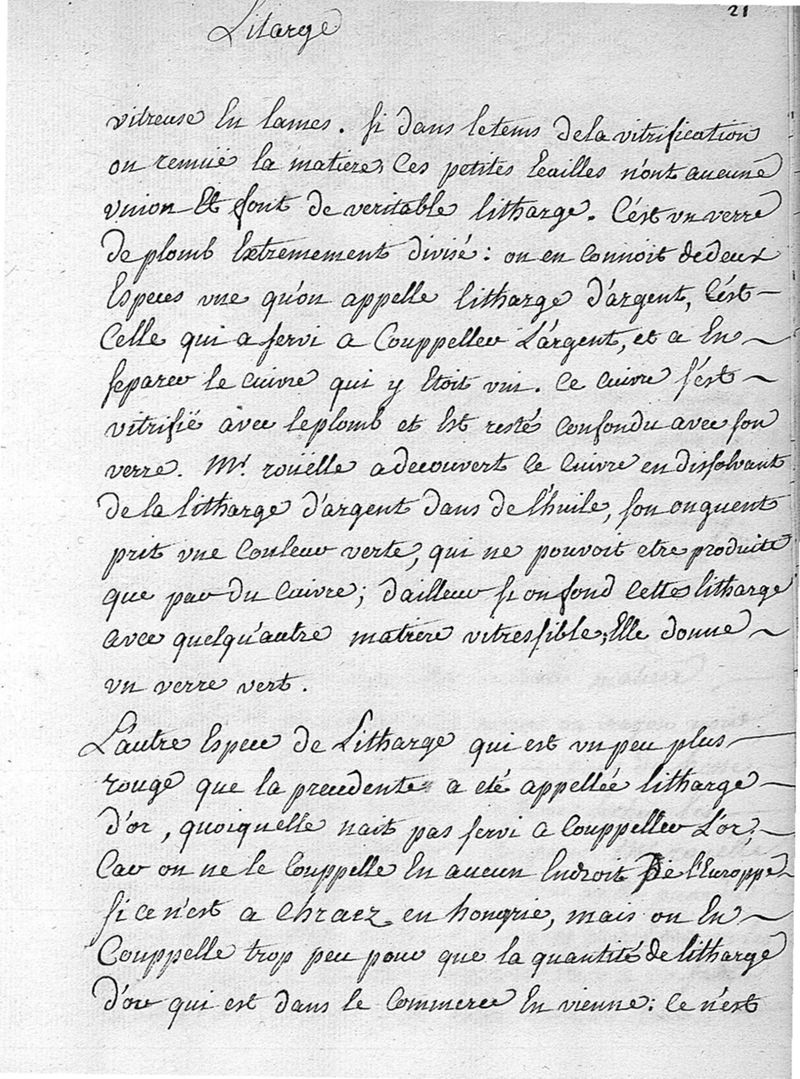 21
Litarge
vitreuse En lames. si dans letems dela vitrification
on remüe la matiere, Ces petites Ecailles n'ont aucune
vnion Et font de veritable litharge. C'est vn verre
de plomb Extremement divisé: on en connoit de deux
Especes vne qu'on appelle litharge d'argent, C'est
Celle qui a servi a Couppeller L'argent, et a En
separer le cuivre qui y Etoit vni. Ce cuivre s'est
vitrifié avec leplomb et Est resté Confondu avec son
verre. Mr. roüelle adecouvert le Cuivre en dissolvant
de la litharge d'argent dans de l'huile, son onguent
prit vne Couleur verte, qui ne pouvoit etre produite
que par du Cuivre; d'ailleur si on fond Cette litharge
avec quelqu'autre matiere vitressible, Elle donne
vn verre vert.
L'autre Espece de Litharge qui est vn peu plus
rouge que la precedente a eté appellée litharge
d'or, quoiquelle nait pas servi a Couppeller L'or,
Car on ne le Couppelle En aucun Endroit De l'Europpe
si ce n'est a Chraez en hongrie, mais on En
Couppelle trop peu pour que la quantité de litharge
d'or qui est dans le Commerce En vienne: Ce n'est